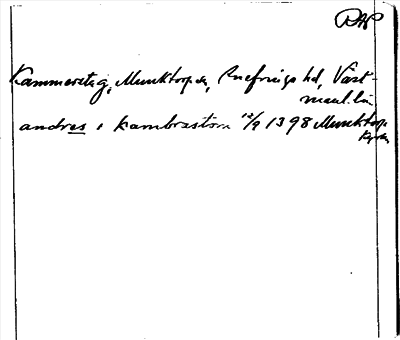 RAP
Kammersta g, Munktorp sn, Snefringe hd, Väst-
manl. län
andres i kambrastom 12/9 1398 Munktorp